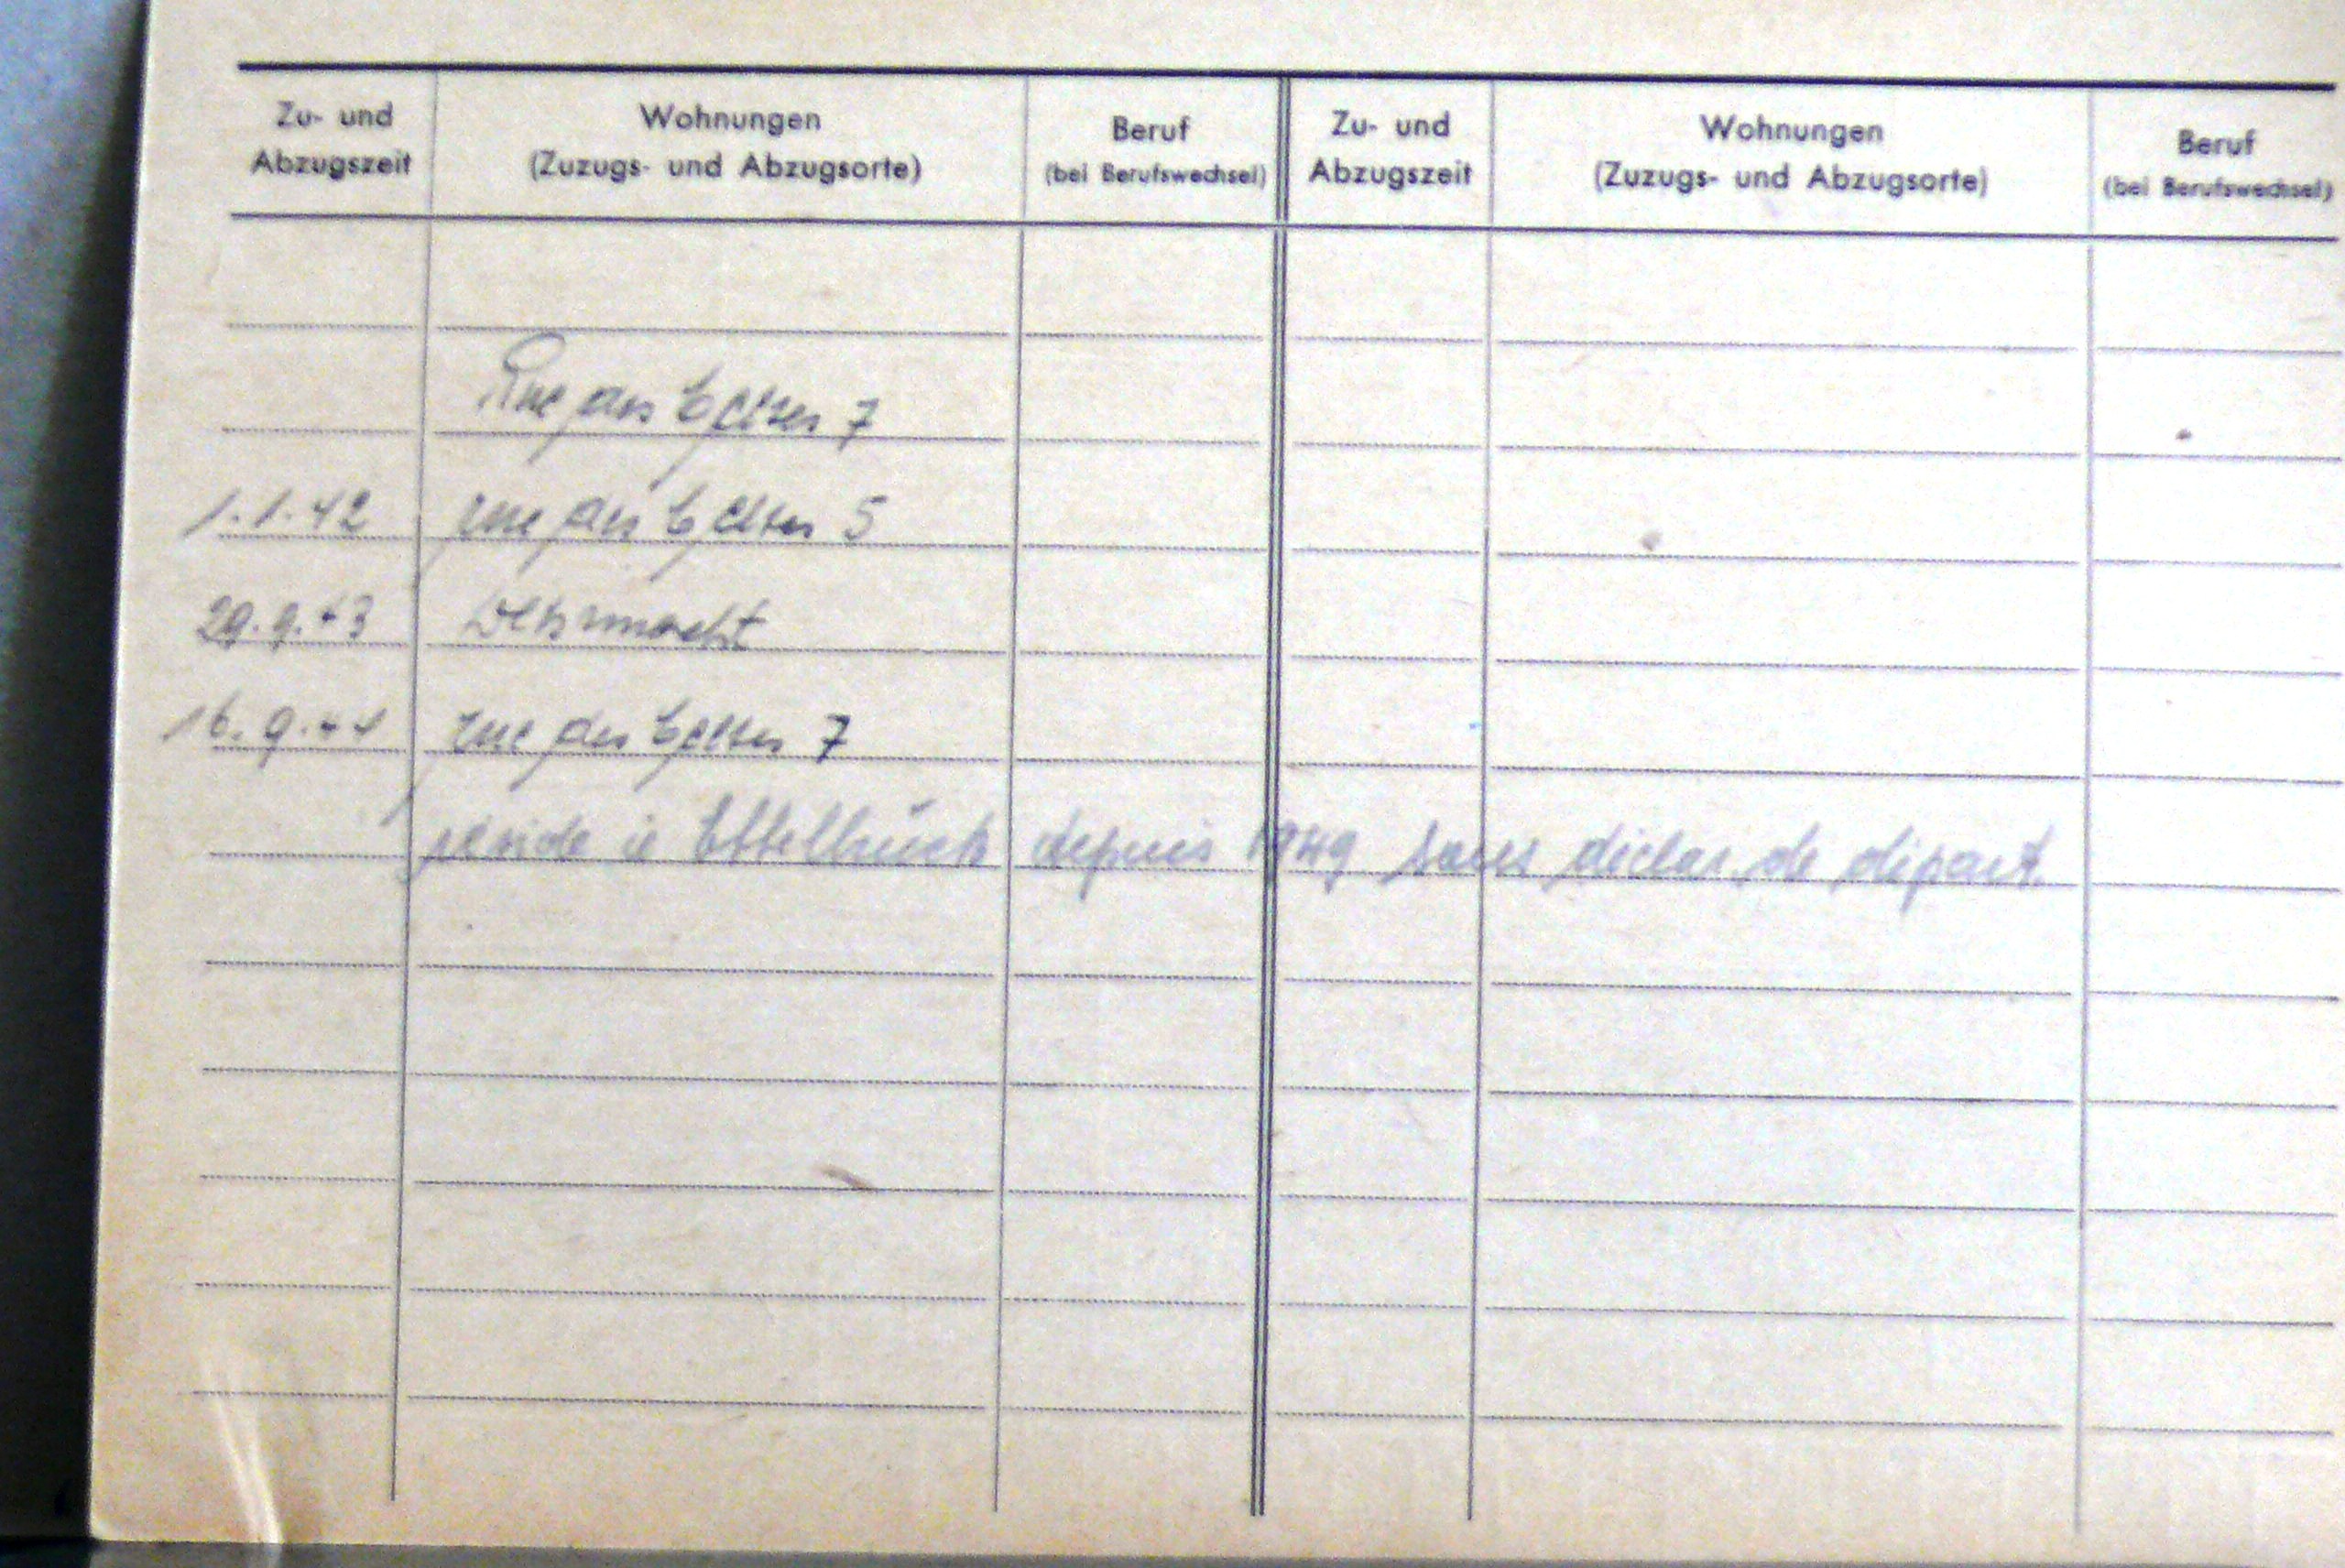 Zu- und Abzugszeit
Wohnungen (Zuzugs- und Abzugsorte)
Beruf (bei Berufswechsel)
Zu- und Abzugszeit
Wohnungen (Zuzugs- und Abzugsorte)
Beruf (bei Berufswechsel)
Rue des 7
1.1.42 rue des 5
29.9.43 Wehrmacht
16.9.44 rue des 7
réside à Ettelbrück depuis 1949 sans déclar. de départ.